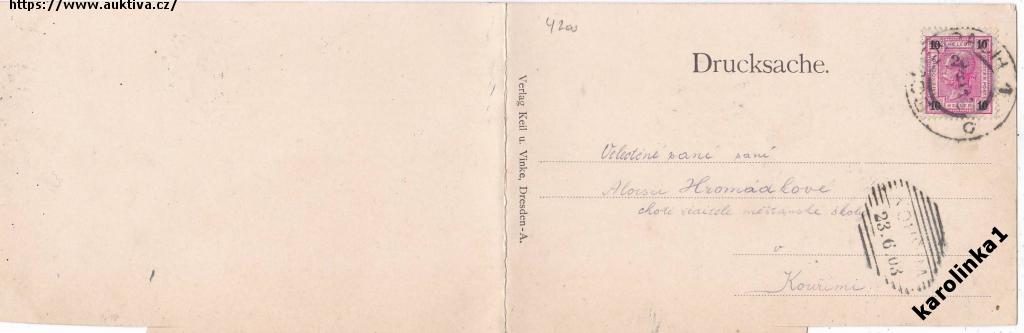 https://www.auktiva.cz/
4200
Drucksache.
10 10
10 10
Verlag Keil u. Vinke, Dresden-A.
Velectěné paní paní
Aloisii Hromádkové
choti ředitele měšťanské školy
v
Kouřimi
23.6.03
karolinka1